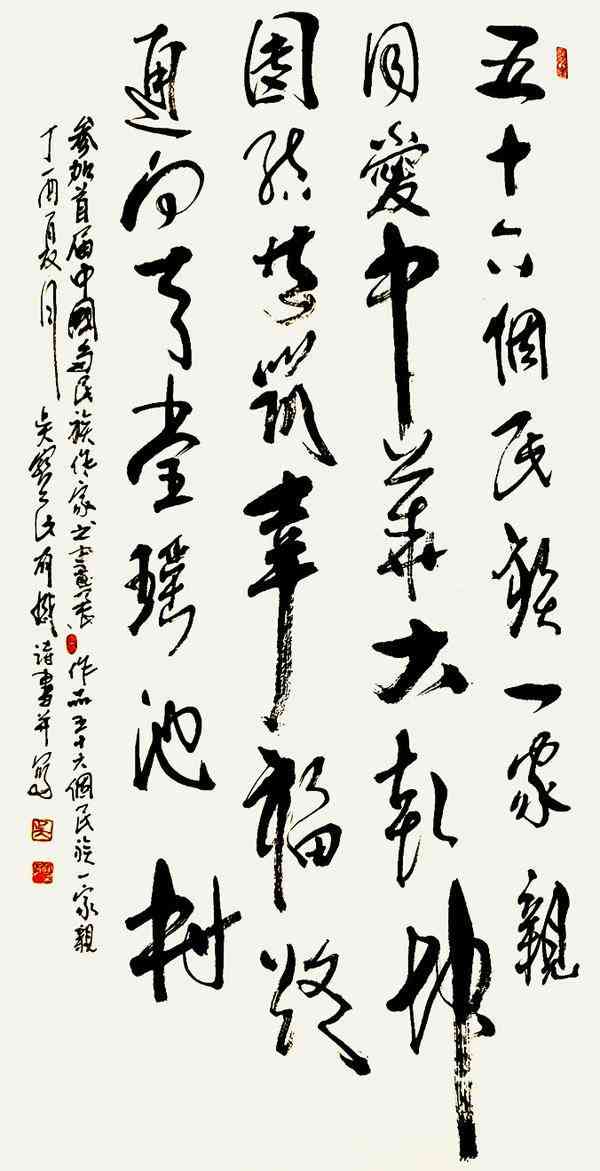 五十六個民族一家親
同愛中華大乾坤
團結共筑幸福路
通向天堂瑶池村
參加首届中國多民族作家书畫展 作品五十六個民族一家親
丁酉夏月 吴寶 詩書并寫